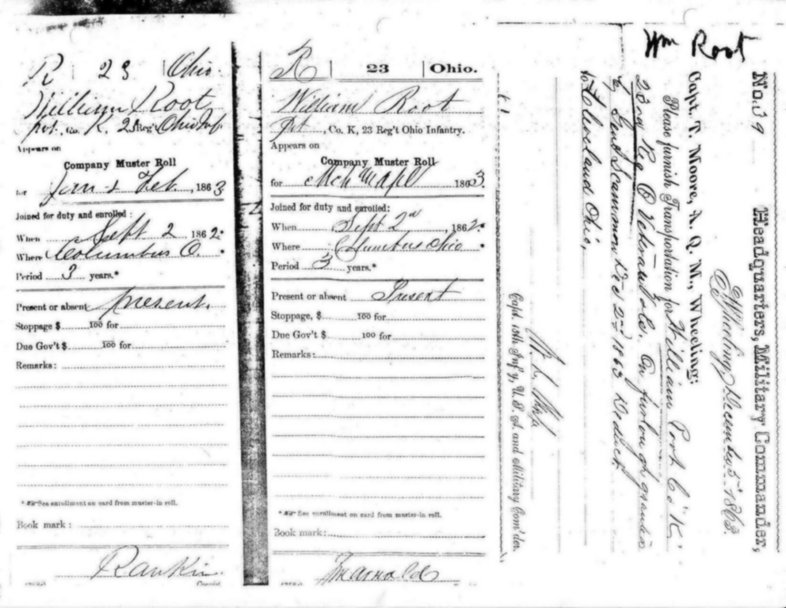 R 23 Ohio.
William Root
Pvt., Co. K, 23 Reg't Ohio Inf.
Appears on
Company Muster Roll
for Jan & Feb, 1863
Joined for duty and enrolled:
When Sept 2, 1862.
Where Columbus O.
Period 3 years.*
Present or absent Present.
Stoppage $ 100 for
Due Gov't $ 100 for
Remarks:
* See enrollment on card from muster-in roll.
Book mark:
Rankin
Copyist.
R 23 Ohio.
William Root
Pvt, Co. K, 23 Reg't Ohio Infantry.
Appears on
Company Muster Roll
for Mch & Apl, 1863.
Joined for duty and enrolled:
When Sept 2nd, 1862.
Where Columbus Ohio.
Period 3 years.*
Present or absent Present
Stoppage, $ 100 for
Due Gov't $ 100 for
Remarks:
* See enrollment on card from muster-in roll.
Book mark:
Arnold
Wm Root
No. 39 Headquarters, Military Commander,
Wheeling December 5 1863.
Capt. T. Moore, A. Q. M., Wheeling:
Please furnish Transportation for William Root Co "K"
23rd Reg O Vols. On furlough granted
by Genl Scammon Dec 2d 1863
to Cleveland Ohio,
Capt. 18th Inf'y, U. S. A. and Military Com'der.